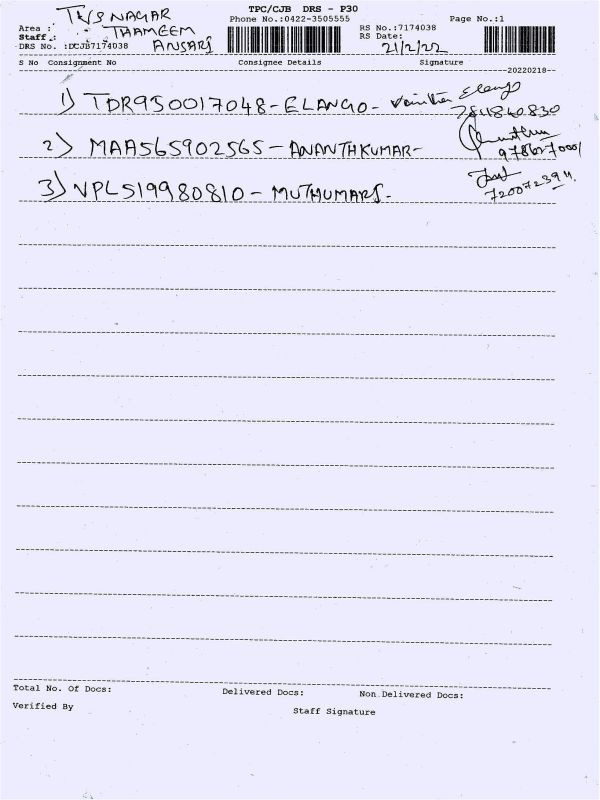 TPC/CJB DRS - P30
Area : TVS NAGAR Phone No.:0422-3505555 RS No.:7174038 Page No.:1
Staff : THAMEEM ANSARI RS Date: 21/2/22
DRS No. :DCJB7174038
S No Consignment No Consignee Details Signature
--20220218--
1) TDR950017048 - ELANGO - Elango
2) MAA565902565 - ANANTHKUMAR -
3) VPL519980810 - MUTHUMARI -
Total No. Of Docs: Delivered Docs: Non Delivered Docs:
Verified By Staff Signature